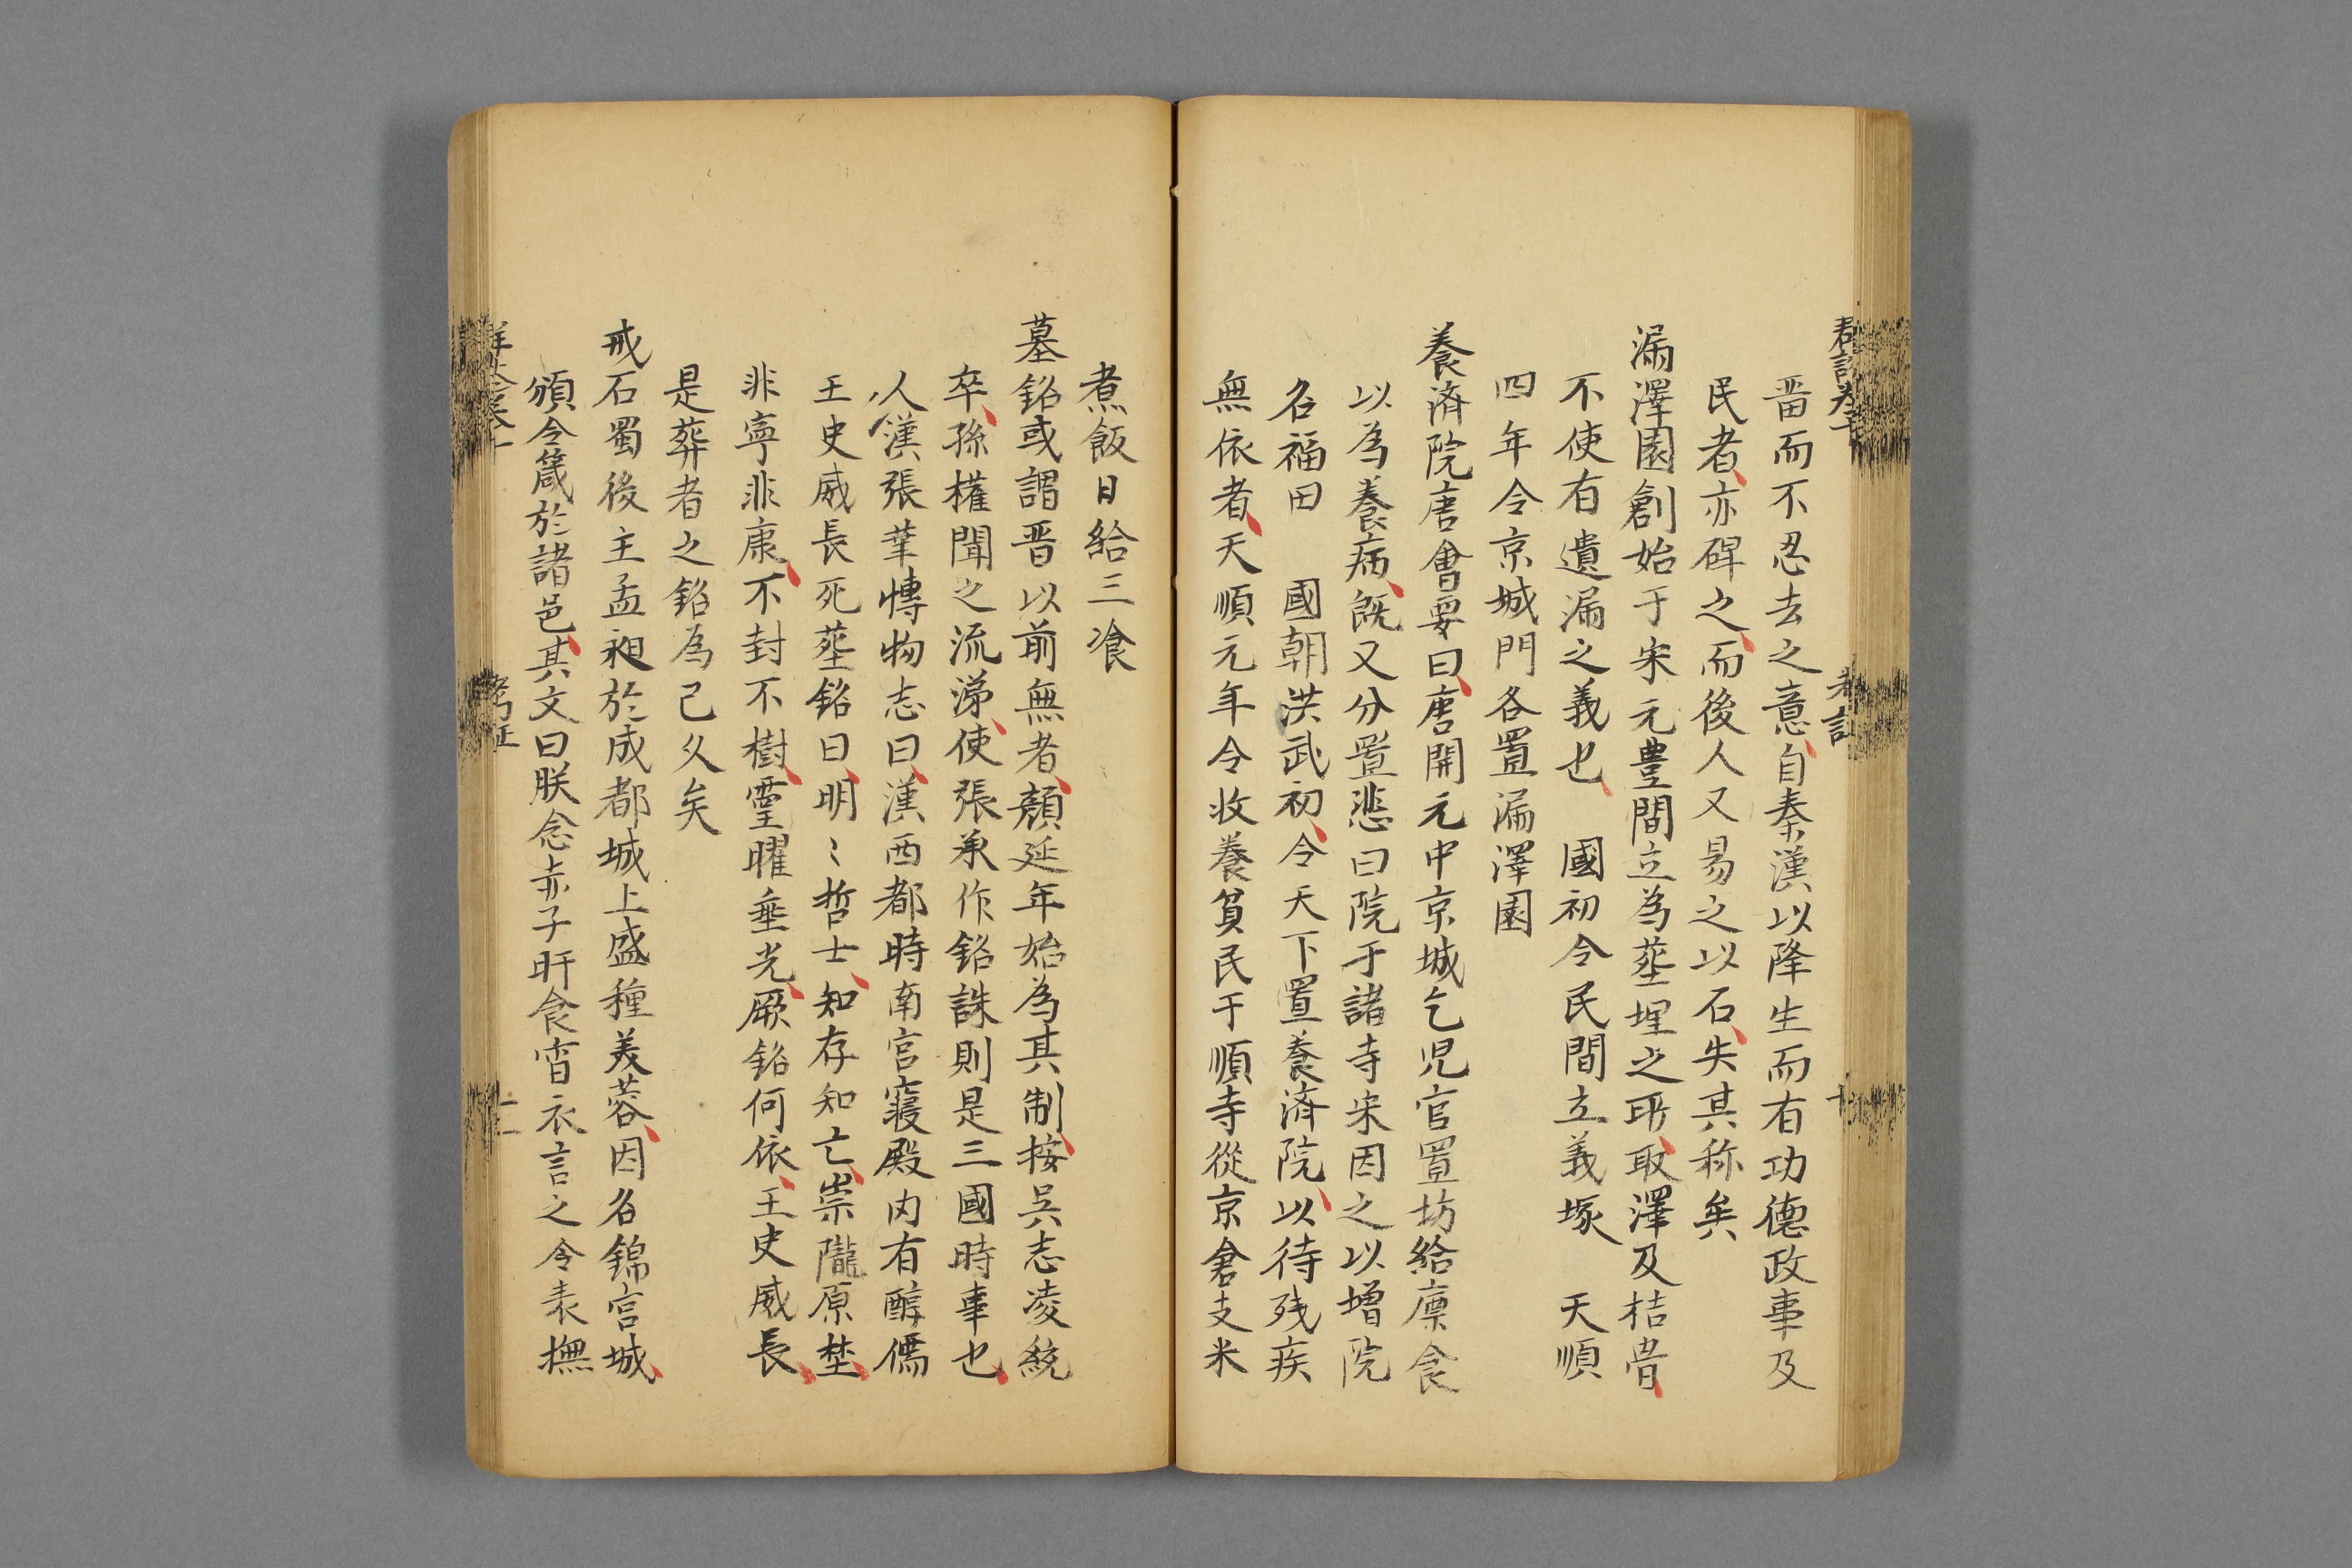 畱而不忍去之意自秦漢以降生而有功德政事及
民者亦碑之而後人又易之以石失其称矣
漏澤園創始于宋元豊間立為塟埋之所取澤及枯骨
不使有遺漏之義也 國初令民間立義塚 天順
四年令京城門各置漏澤園
養済院唐會要曰唐開元中京城乞児官置坊給廪食
以為養病既又分置悲曰院于諸寺宋因之以増院
名福田 國朝洪武初令天下置養済院以待残疾
無依者天順元年令收養貧民于順寺從京倉支米
煮飯日給三飡
墓銘或謂晋以前無者顏延年始為其制按吳志凌統
卒孫權聞之流涕使張承作銘誄則是三國時事也
人漢張華博物志曰漢西都時南宮寢殿内有醇儒
王史威長死塟銘曰明〻哲士知存知亡崇隴原埜
非寧非康不封不樹靈曜垂光厥銘何依王史威長
是葬者之銘為已久矣
戒石蜀後主孟昶於成都城上盛種芙蓉因名錦宮城
頒令箴於諸邑其文曰朕念赤子旰食宵衣言之令表撫